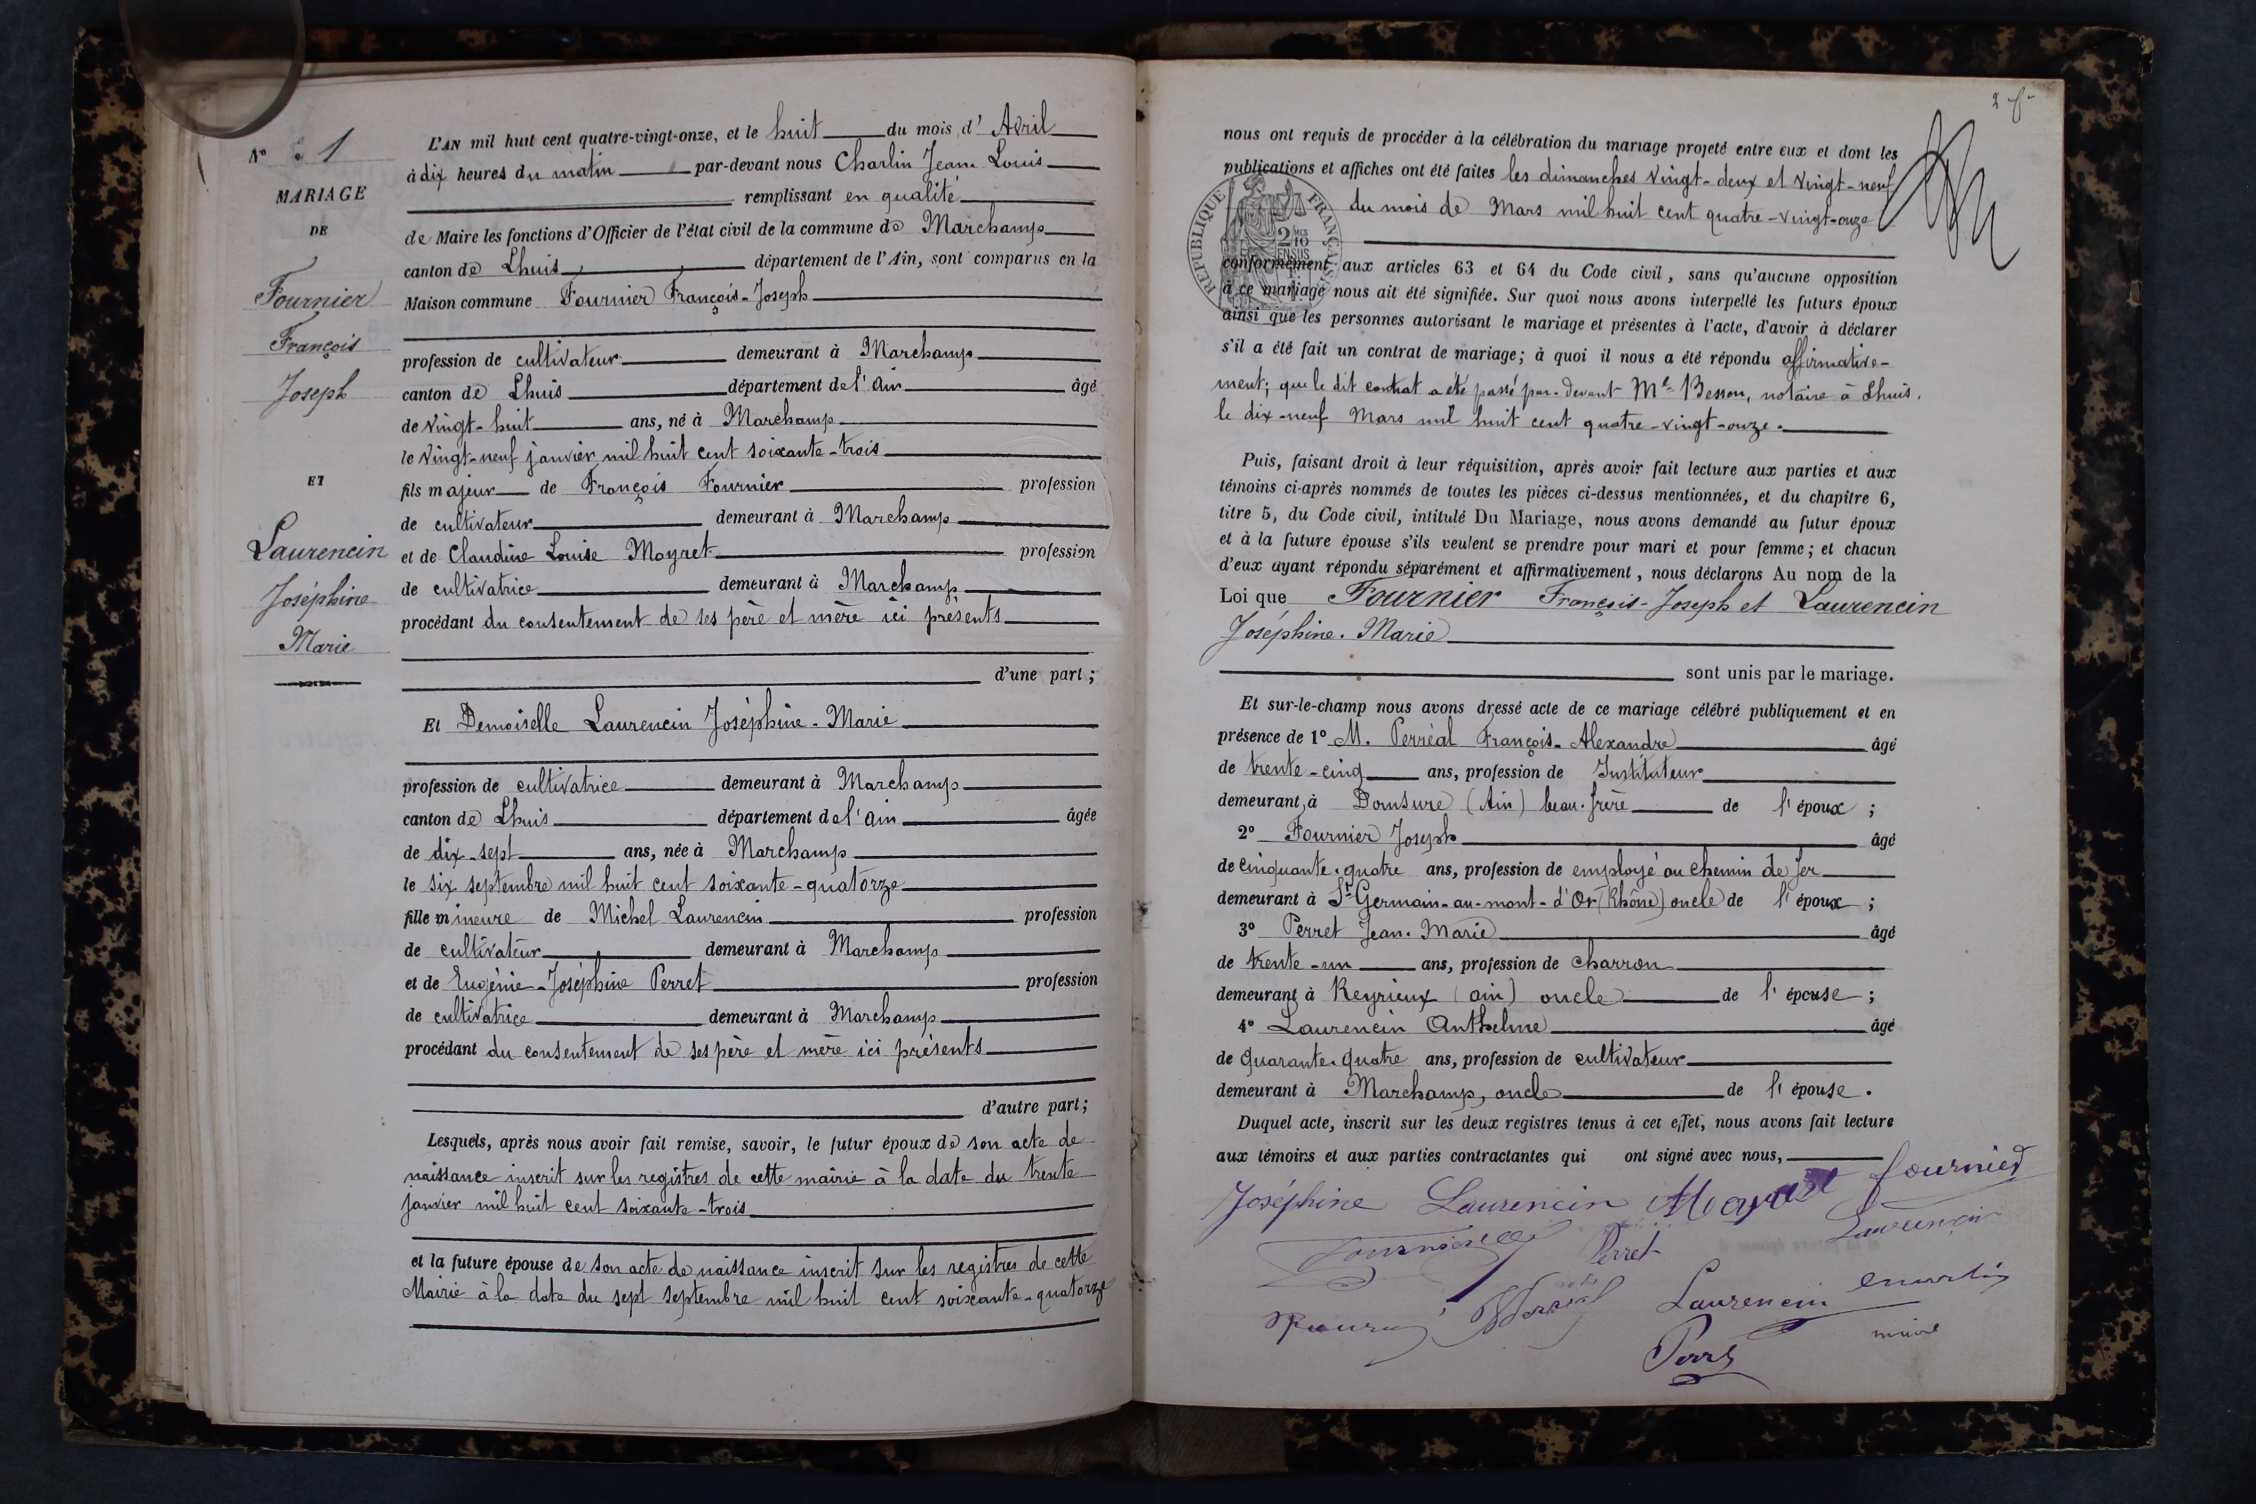 N° 1
MARIAGE
DE
Fournier
François
Joseph
ET
Laurencin
Joséphine
Marie
L'AN mil huit cent quatre-vingt-onze, et le huit du mois d'Avril
à dix heures du matin par-devant nous Charlin Jean Louis
remplissant en qualité
de Maire les fonctions d'Officier de l'état civil de la commune de Marchamp
canton de Lhuis département de l'Ain, sont comparus en la
Maison commune Fournier François-Joseph
profession de cultivateur demeurant à Marchamp
canton de Lhuis département de l'ain âgé
de vingt-huit ans, né à Marchamp
le vingt-neuf janvier mil huit cent soixante-trois
fils majeur de François Fournier profession
de cultivateur demeurant à Marchamp
et de Claudine Louise Moyret profession
de cultivatrice demeurant à Marchamp
procédant du consentement de ses père et mère ici présents
d'une part;
Et Demoiselle Laurencin Joséphine-Marie
profession de cultivatrice demeurant à Marchamp
canton de Lhuis département de l'ain âgée
de dix-sept ans, née à Marchamp
le six septembre mil huit cent soixante-quatorze
fille mineure de Michel Laurencin profession
de cultivateur demeurant à Marchamp
et de Eugénie-Joséphine Perret profession
de cultivatrice demeurant à Marchamp
procédant du consentement de ses père et mère ici présents
d'autre part;
Lesquels, après nous avoir fait remise, savoir, le futur époux de son acte de
naissance inscrit sur les registres de cette mairie à la date du trente
janvier mil huit cent soixante-trois
et la future épouse de son acte de naissance inscrit sur les registres de cette
Mairie à la date du sept septembre mil huit cent soixante-quatorze
2
nous ont requis de procéder à la célébration du mariage projeté entre eux et dont les
publications et affiches ont été faites les dimanches vingt-deux et vingt-neuf
du mois de Mars mil huit cent quatre-vingt-onze
RÉPUBLIQUE FRANÇAISE
conformément aux articles 63 et 64 du Code civil, sans qu'aucune opposition
à ce mariage nous ait été signifiée. Sur quoi nous avons interpellé les futurs époux
ainsi que les personnes autorisant le mariage et présentes à l'acte, d'avoir à déclarer
s'il a été fait un contrat de mariage; à quoi il nous a été répondu affirmative-
ment; que le dit contrat a été passé par-devant Me Besson, notaire à Lhuis,
le dix-neuf Mars mil huit cent quatre-vingt-onze.
Puis, faisant droit à leur réquisition, après avoir fait lecture aux parties et aux
témoins ci-après nommés de toutes les pièces ci-dessus mentionnées, et du chapitre 6,
titre 5, du Code civil, intitulé Du Mariage, nous avons demandé au futur époux
et à la future épouse s'ils veulent se prendre pour mari et pour femme; et chacun
d'eux ayant répondu séparément et affirmativement, nous déclarons Au nom de la
Loi que Fournier François-Joseph et Laurencin
Joséphine-Marie
sont unis par le mariage.
Et sur-le-champ nous avons dressé acte de ce mariage célébré publiquement et en
présence de 1° M. Perréal François-Alexandre âgé
de trente-cinq ans, profession de Instituteur
demeurant à Domsure (Ain) beau-frère de l'époux;
2° Fournier Joseph âgé
de cinquante-quatre ans, profession de employé au chemin de fer
demeurant à St Germain-au-mont-d'Or (Rhône) oncle de l'époux;
3° Perret Jean-Marie âgé
de trente-un ans, profession de charron
demeurant à Reyrieux (ain) oncle de l'épouse;
4° Laurencin Anthelme âgé
de quarante-quatre ans, profession de cultivateur
demeurant à Marchamp, oncle de l'épouse.
Duquel acte, inscrit sur les deux registres tenus à cet effet, nous avons fait lecture
aux témoins et aux parties contractantes qui ont signé avec nous,
Joséphine Laurencin fournier
Laurencin
Perret
Laurencin
maire